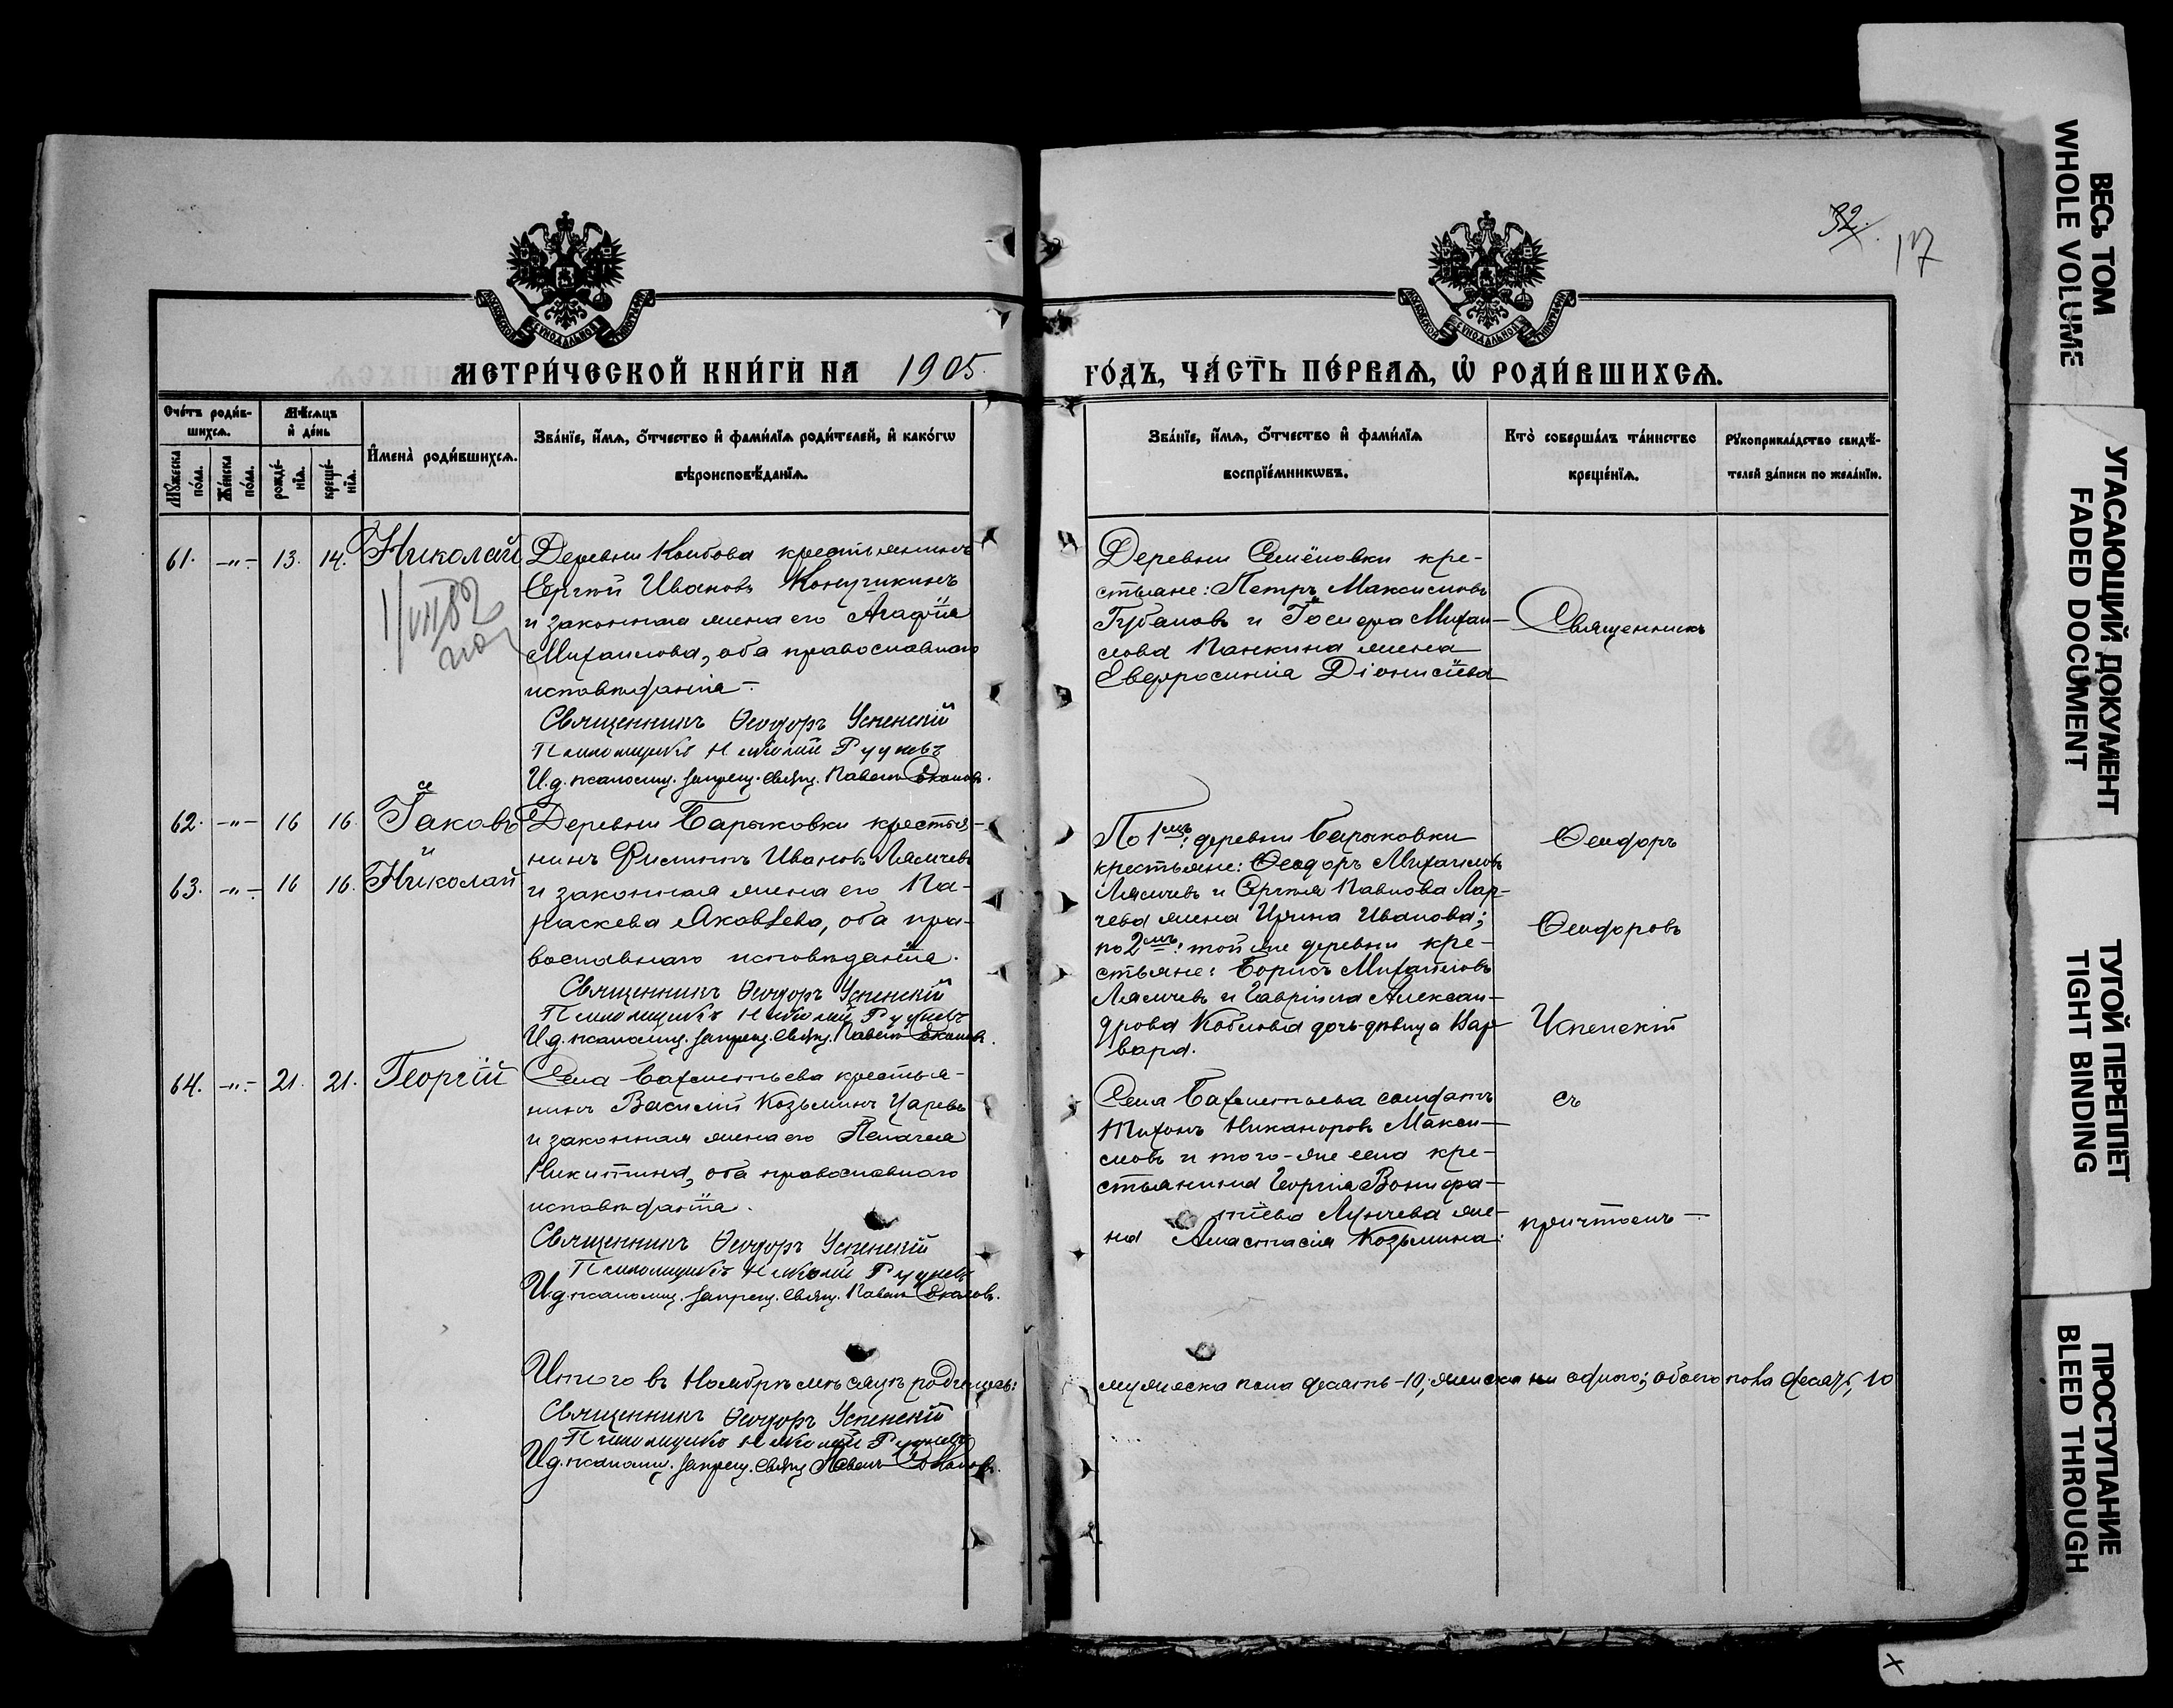 32.
17
МЕТРИ́ЧЕСКОЙ КНИ́ГИ НА 1905.
ГО́ДЪ, ЧА́СТЬ ПЕ́РВАѦ, Ѡ҆ РОДИ́ВШИХСѦ.
Сче́тъ роди́в-
шихсѧ.
Мѣ́сѧцъ
и҆ де́нь
Мꙋ́жеска
по́ла.
Же́нска
по́ла.
рожде́-
нїѧ.
креще́-
нїѧ.
И҆мена̀ роди́вшихсѧ.
Зва́нїе, и҆́мѧ, ѻ҆́тчество и҆ фами́лїѧ роди́телей, и҆ како́гѡ
вѣроисповѣ́данїѧ.
Зва́нїе, и҆́мѧ, ѻ҆́тчество и҆ фами́лїѧ
воспрїе́мникѡвъ.
Кто̀ соверша́лъ та́инство
креще́нїѧ.
Рꙋкоприкла́дство свидѣ́-
телей за́писи по жела́нїю.
61. -„- 13. 14. Николай
1/VIII 82
Деревни крестьянинъ
Сергѣй Ивановъ
и законная жена его Агафія
Михаилова, оба православнаго
исповѣданія.
Священникъ Ѳеодоръ Успенскій
Псаломщикъ Николай Рудневъ
И.д. псаломщ. запрещ. свящ. Павелъ
Деревни Семёновки кре-
стьяне: Петръ Максимовъ
Губановъ и Іосифа Михаи-
лова Панкина жена
Евфросинія Діонисіева
Священникъ
62. -„- 16 16. Іаковъ
и
63. -„- 16 16. Николай
Деревни Барыковки крестья-
нинъ Филиппъ Ивановъ Лямичевъ
и законная жена его Па-
раскева Яковлева, оба пра-
вославнаго исповѣданія.
Священникъ Ѳеодоръ Успенскій
Псаломщикъ Николай Рудневъ
И.д. псаломщ. запрещ. свящ. Павелъ
По 1мъ: деревни Барыковки
крестьяне: Ѳеодоръ Михаиловъ
Лямичевъ и Сергѣя Павлова Лар-
чева жена Ирина Иванова;
по 2мъ: той же деревни кре-
стьяне: Борисъ Михаиловъ
Лямичевъ и Гавріила Алексан-
дрова Коблова дочь-дѣвица Вар-
вара.
Ѳеодоръ
Ѳеодоровъ
Успенскій
64. -„- 21. 21. Георгій
Села Бахметьева крестья-
нинъ Василій Козьминъ Царевъ
и законная жена его Пелагея
Никитина, оба православнаго
исповѣданія.
Священникъ Ѳеодоръ Успенскій
Псаломщикъ Николай Рудневъ
И.д. псаломщ. запрещ. свящ. Павелъ
Села Бахметьева солдатъ
Тихонъ Никаноровъ Макси-
мовъ и того-же села кре-
стьянина Георгія Вонифа-
тіева Лунчева же-
на Анастасія Козьмина.
съ
причтомъ
Итого въ Ноябрѣ мѣсяцѣ родилось:
мужеска пола десять-10; женска ни одного; обоего пола десять, 10
Священникъ Ѳеодоръ Успенскій
Псаломщикъ Николай Рудневъ
И.д. псаломщ. запрещ. свящ. Павелъ
ВЕСЬ ТОМ
WHOLE VOLUME
УГАСАЮЩИЙ ДОКУМЕНТ
FADED DOCUMENT
ТУГОЙ ПЕРЕПЛЕТ
TIGHT BINDING
ПРОСТУПАНИЕ
BLEED THROUGH